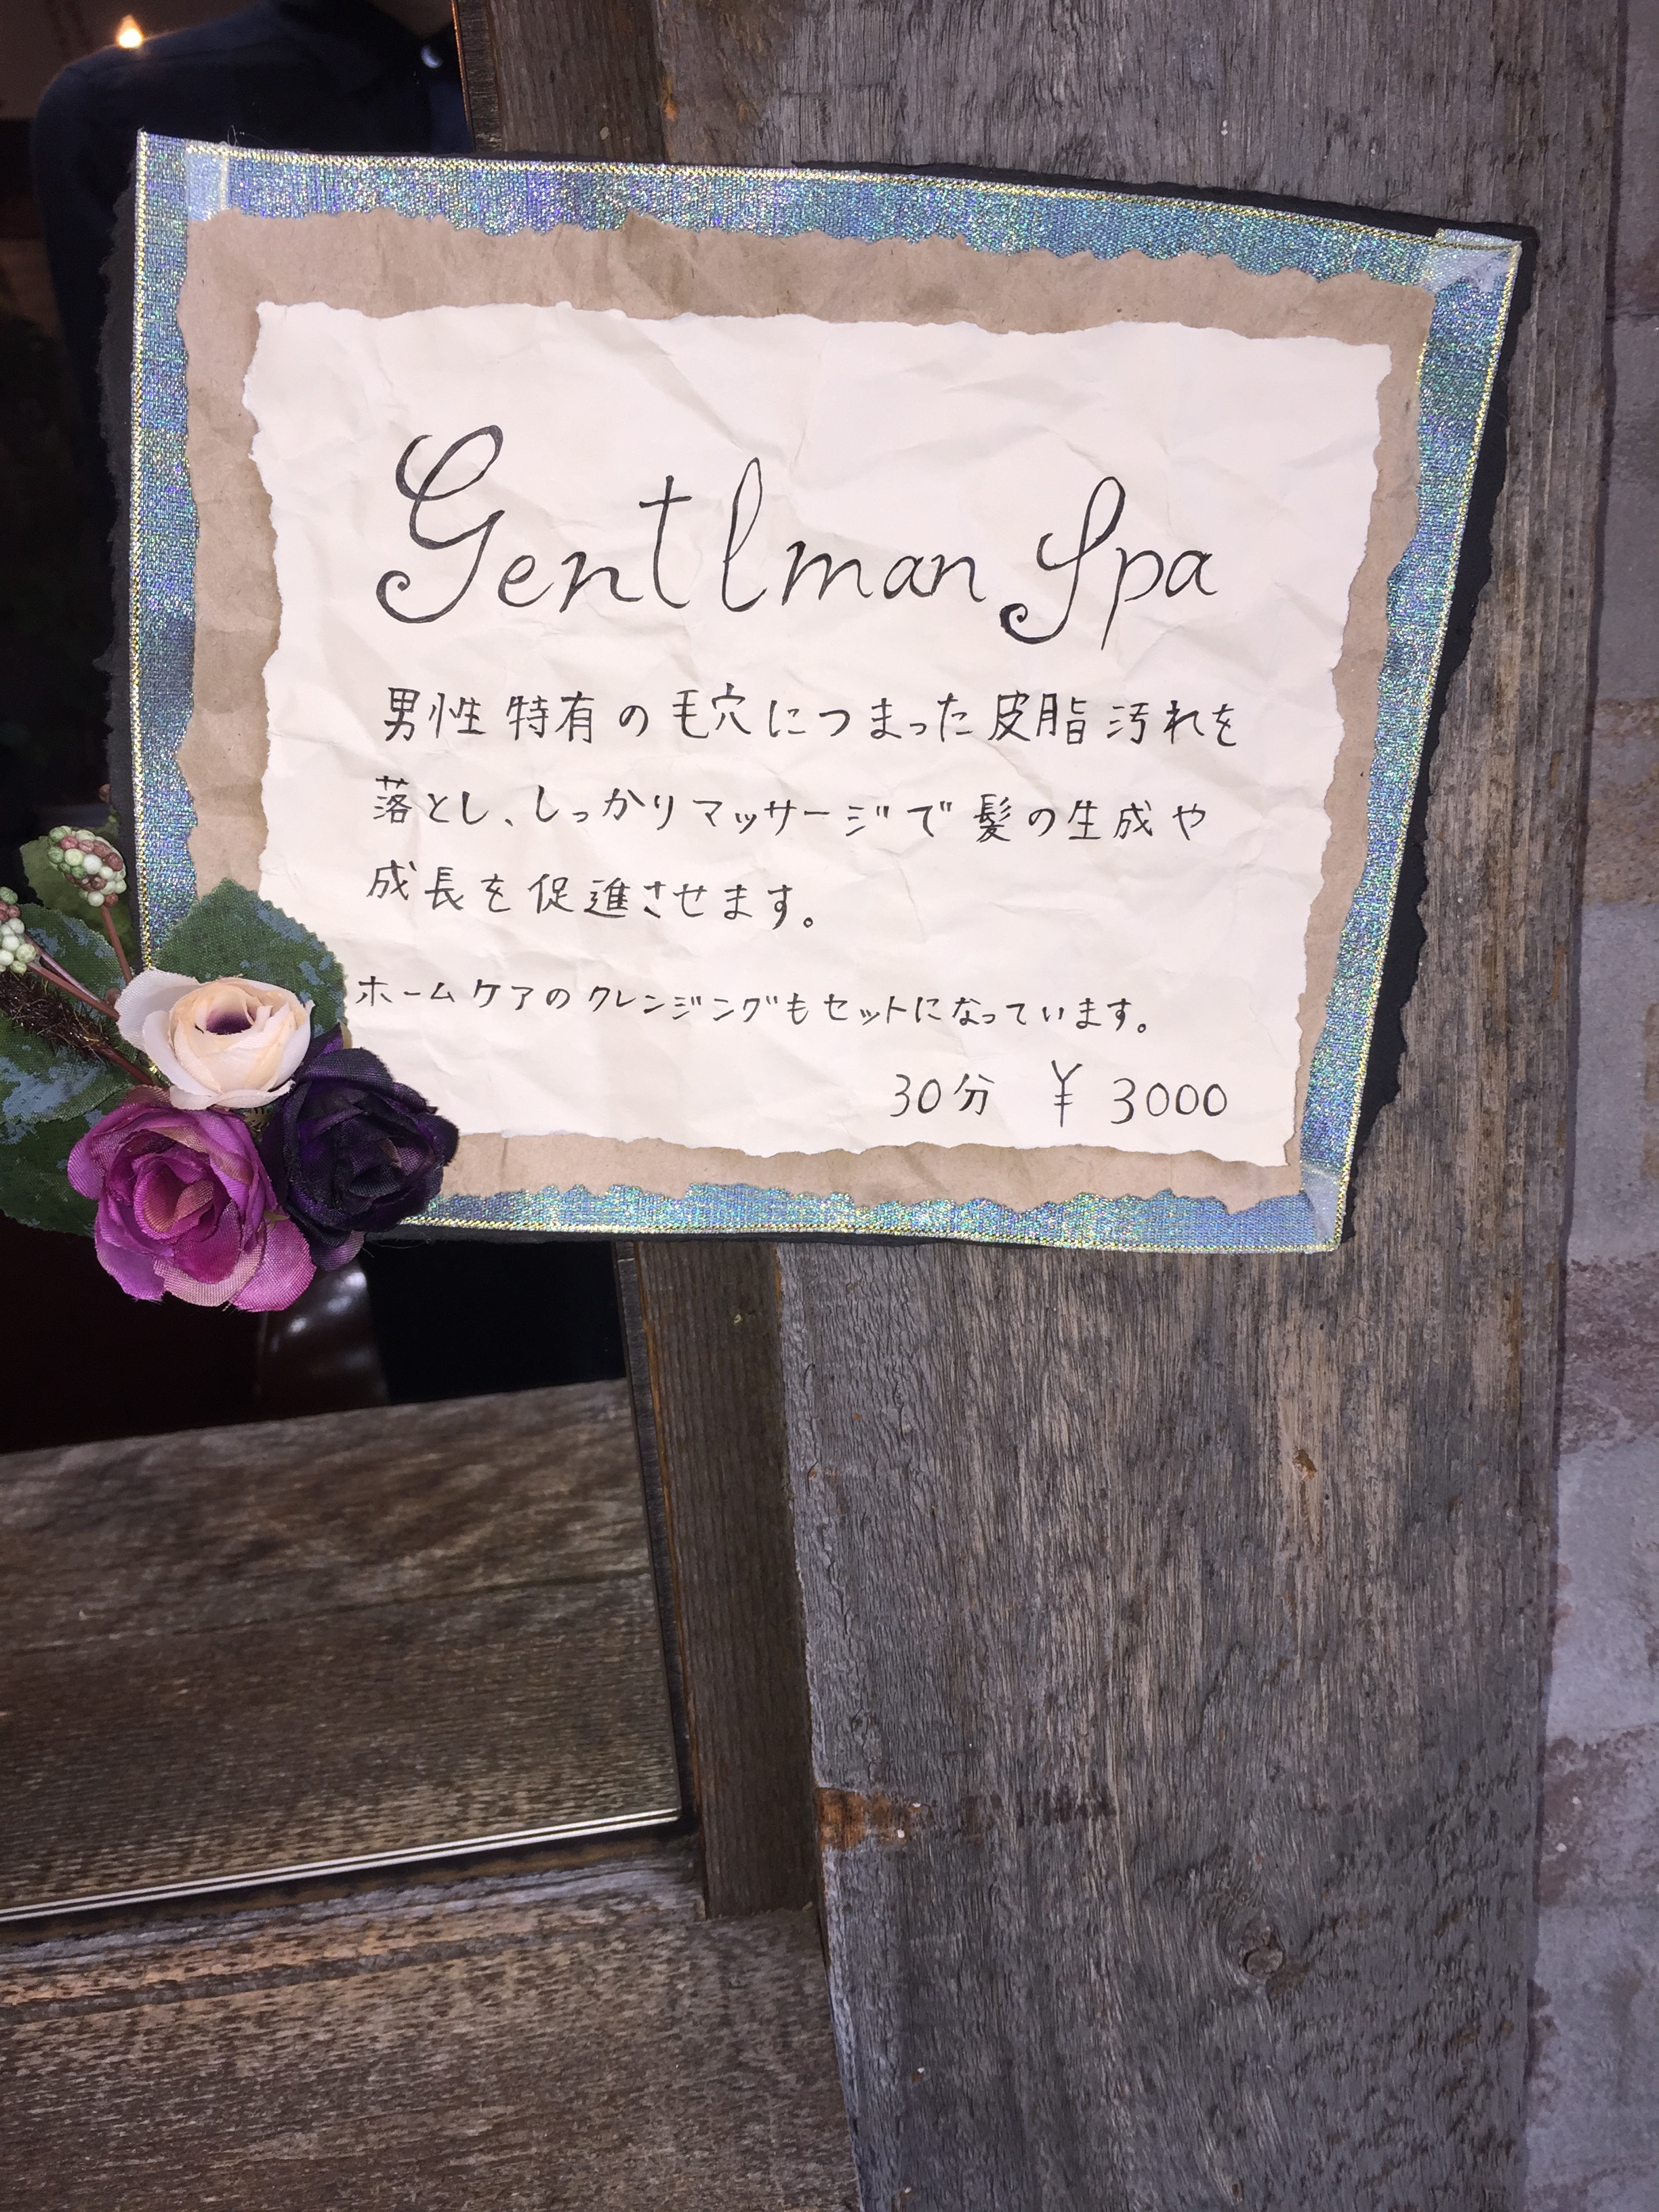 Gentlman Spa
男性特有の毛穴につまった皮脂汚れを
落とし、しっかりマッサージで髪の生成や
成長を促進させます。
ホームケアのクレンジングもセットになっています。
30分 ¥ 3000